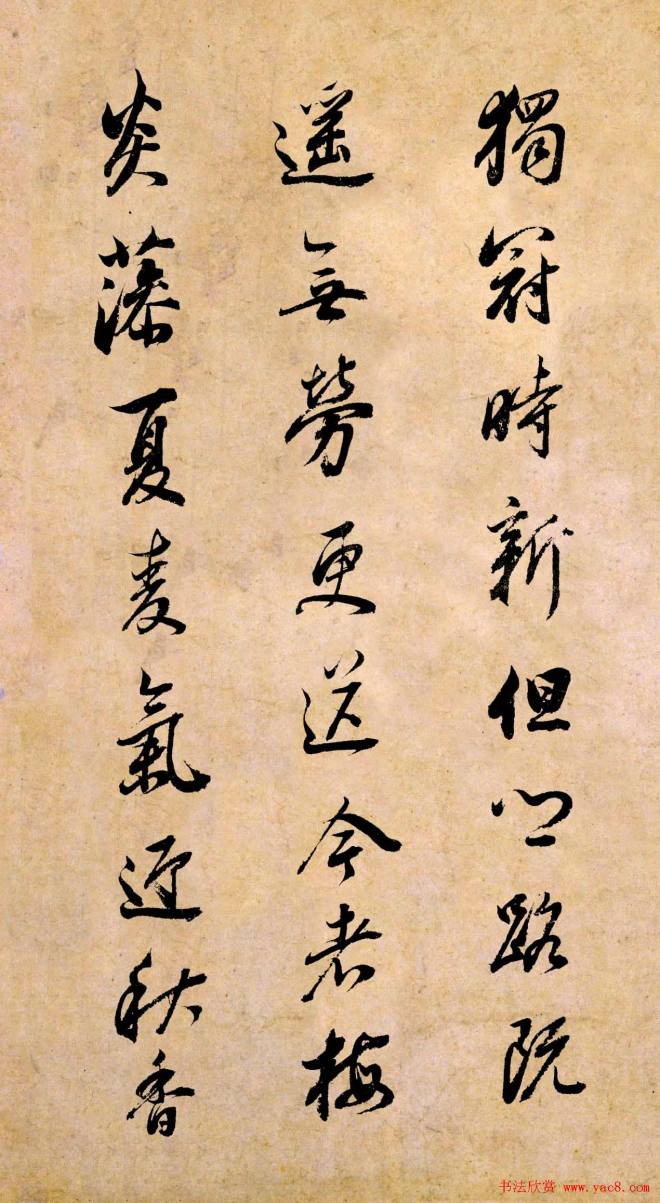 獨冠時新但以路既
遥無勞更送今者梅
炎藻夏麦氣迎秋香
书法欣赏 www.yac8.com